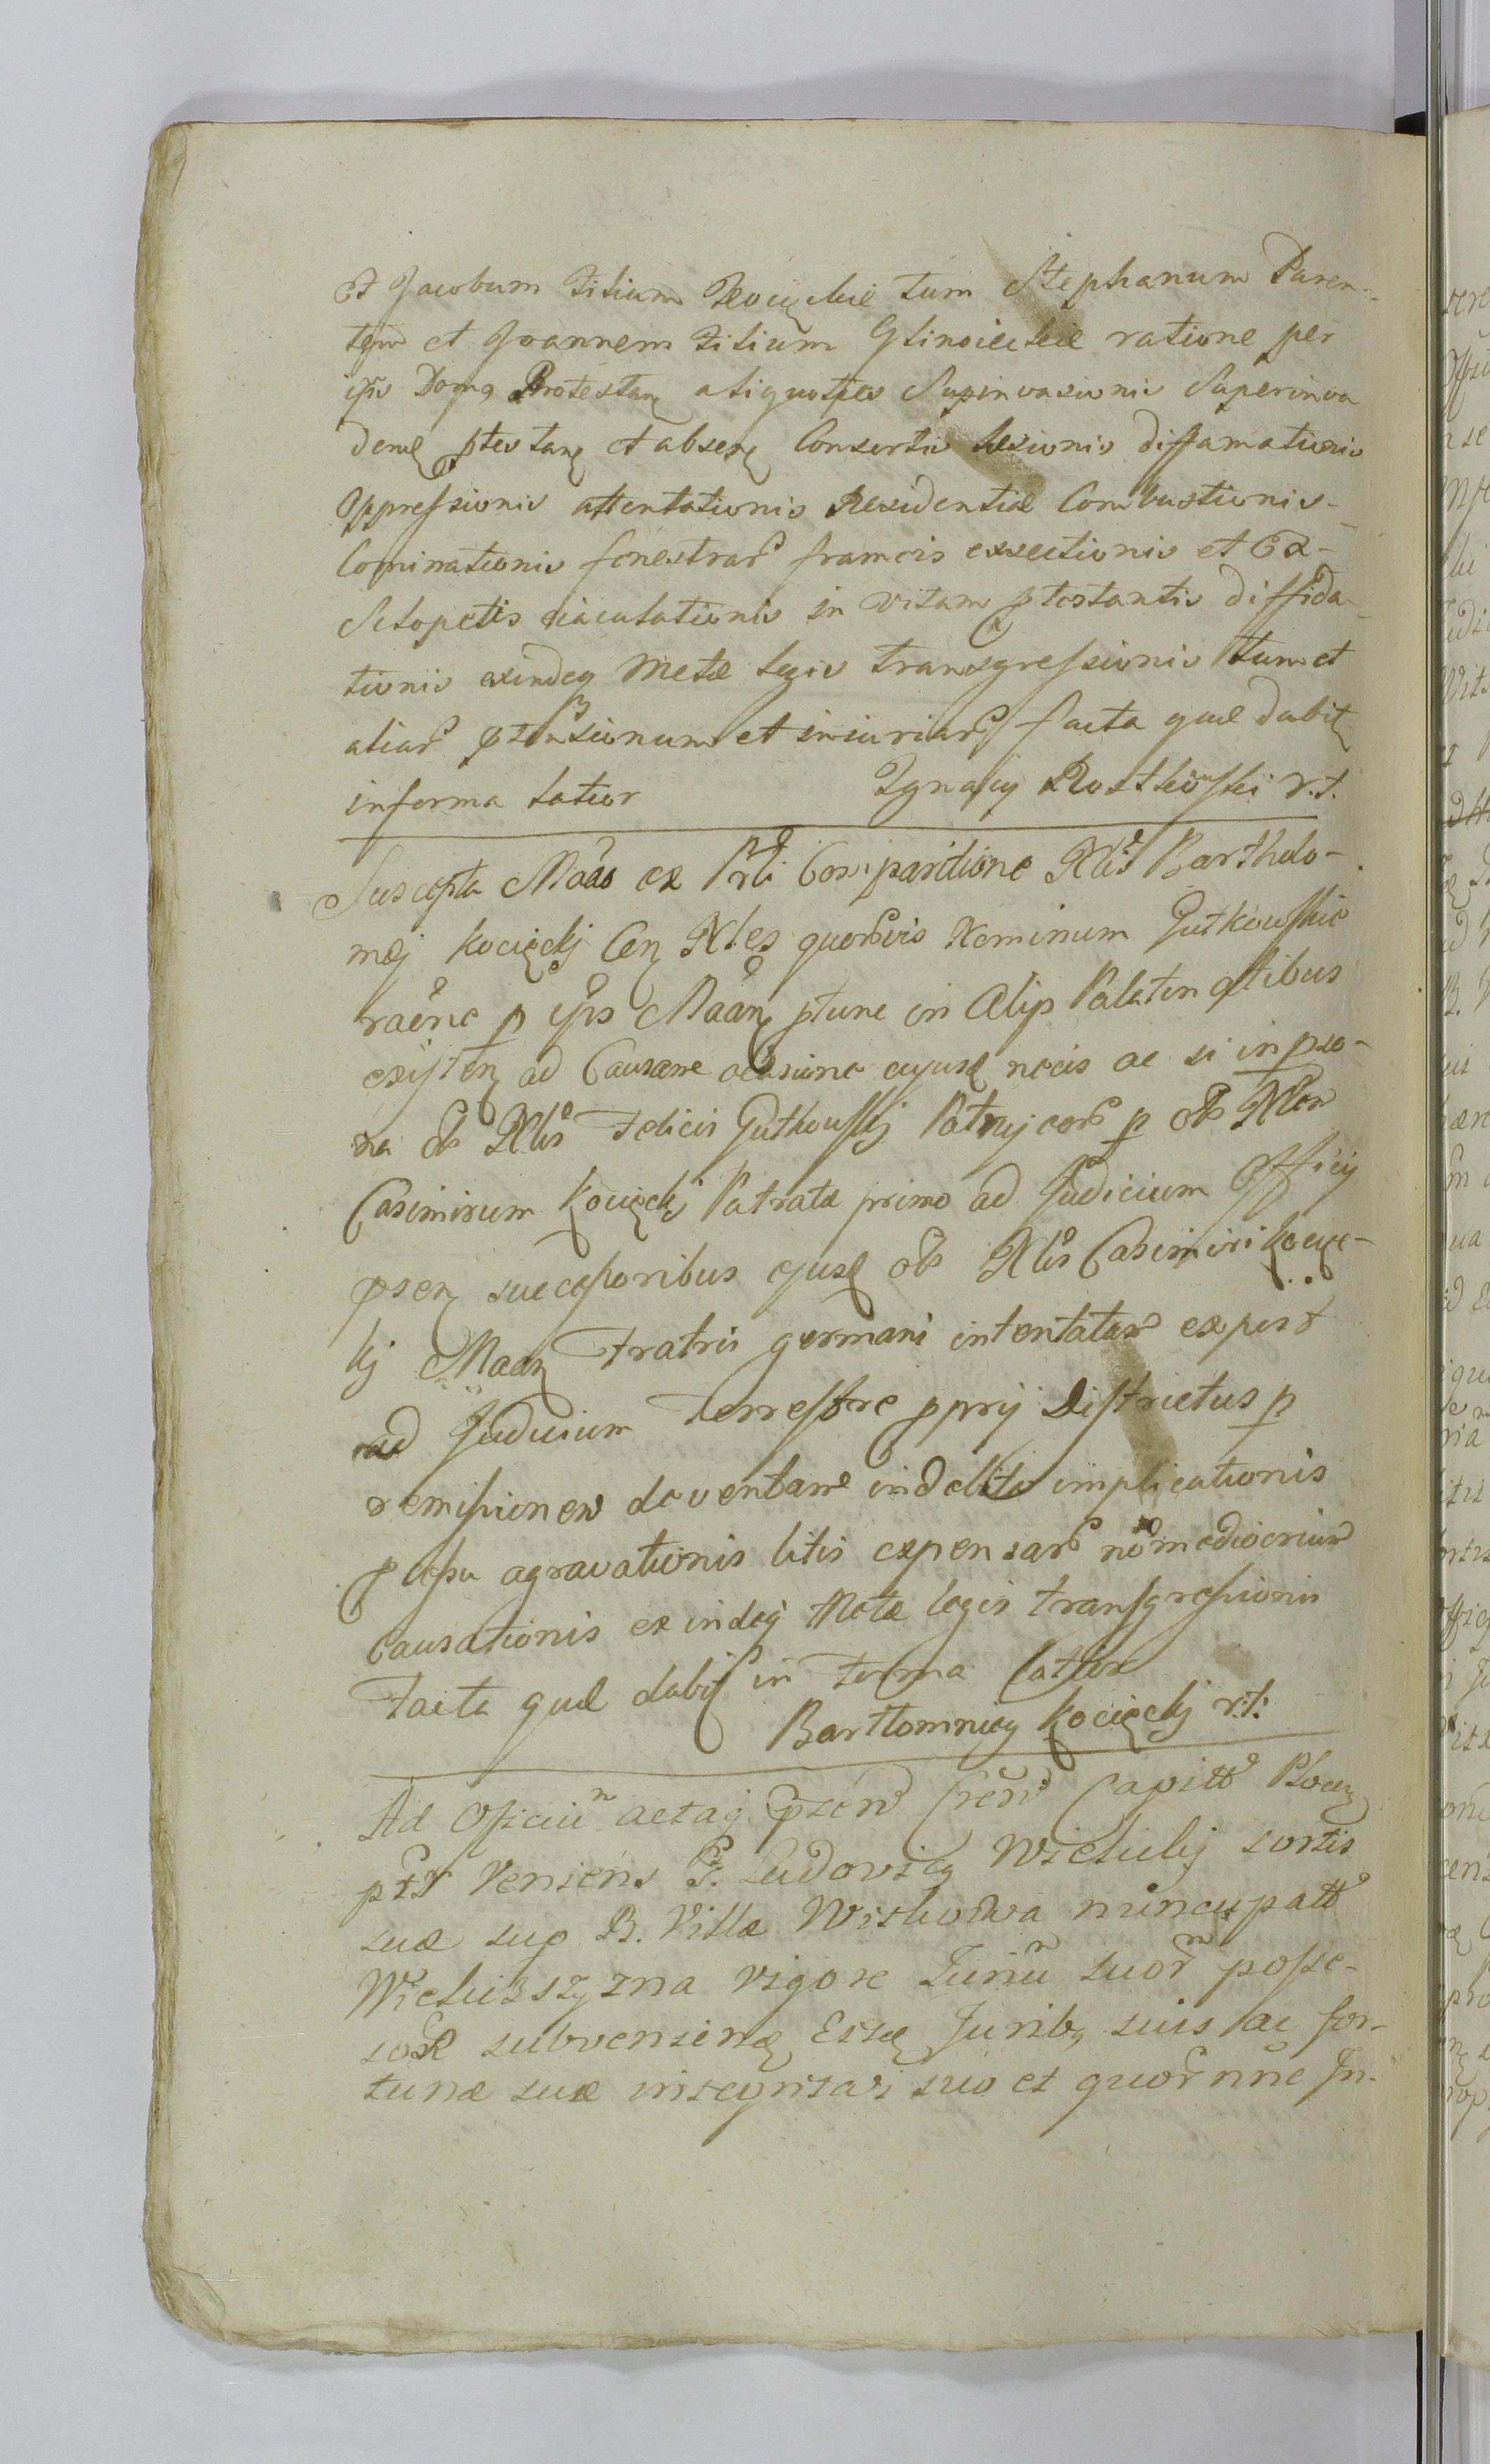 Et Jacobum Filium Kocięckie tum Stephanum Paren-
tem et Joannem Filium Glinoieckie ratione per
ips Domq Protestan aliquoties Supinvasionis Superinva
denq ptestan et absen Consortis Lesionis diffamationis
Oppressionis attentationis Residentiæ Combustionis-
Cominationis fenestrar frameis exsectionis et Ex-
Sclopetis eiaculationis in vitam ptestantis diffida-
tionis exindeq Metæ legis transgressionis tum et
aliar ptensionum et iniuriar facta quæ dabit
informa latior Ignacy Rostkowski r.t.
Suscepta Mado ex Prli Comparitione Nlis Bartholo-
mej Kocięckj Con Nles quorvis Nominum Gutkowskie
raône p ips Maân ptunc in Palatin ptibus
existen ad Causam occasione cujusd necis ac si in perso-
na ol Nlis Felicis Gutkowskj Patruj eor p ol Nlem
Casimirum Kocięckj Patratæ primo ad Judicium Officij
psen successoribus ejusd ol Nlis Casimiri Kocięc-
kj Maan Fratris germani intentatam expost
ad Judicium Terrestre pprij Districtus p
remissionem deventam indebitæ implicationis
agravationis litis expensar no mediocrium
Causationis exindeq Metæ legis transgressionis
Facta quæ dabit in Forma latior
Bartłomniey Kocięckj r.t.
Ad Oficiu actaq psen Cren Capitt Plocen
psr Veniens G. Ludovicq Wichulij sortis
suæ sup B. Villæ nuncupatt
vigore Juriu suor posse-
sor subveniend Essq Juribq suis ac for-
tunæ suæ integritati suo et quor nne In-